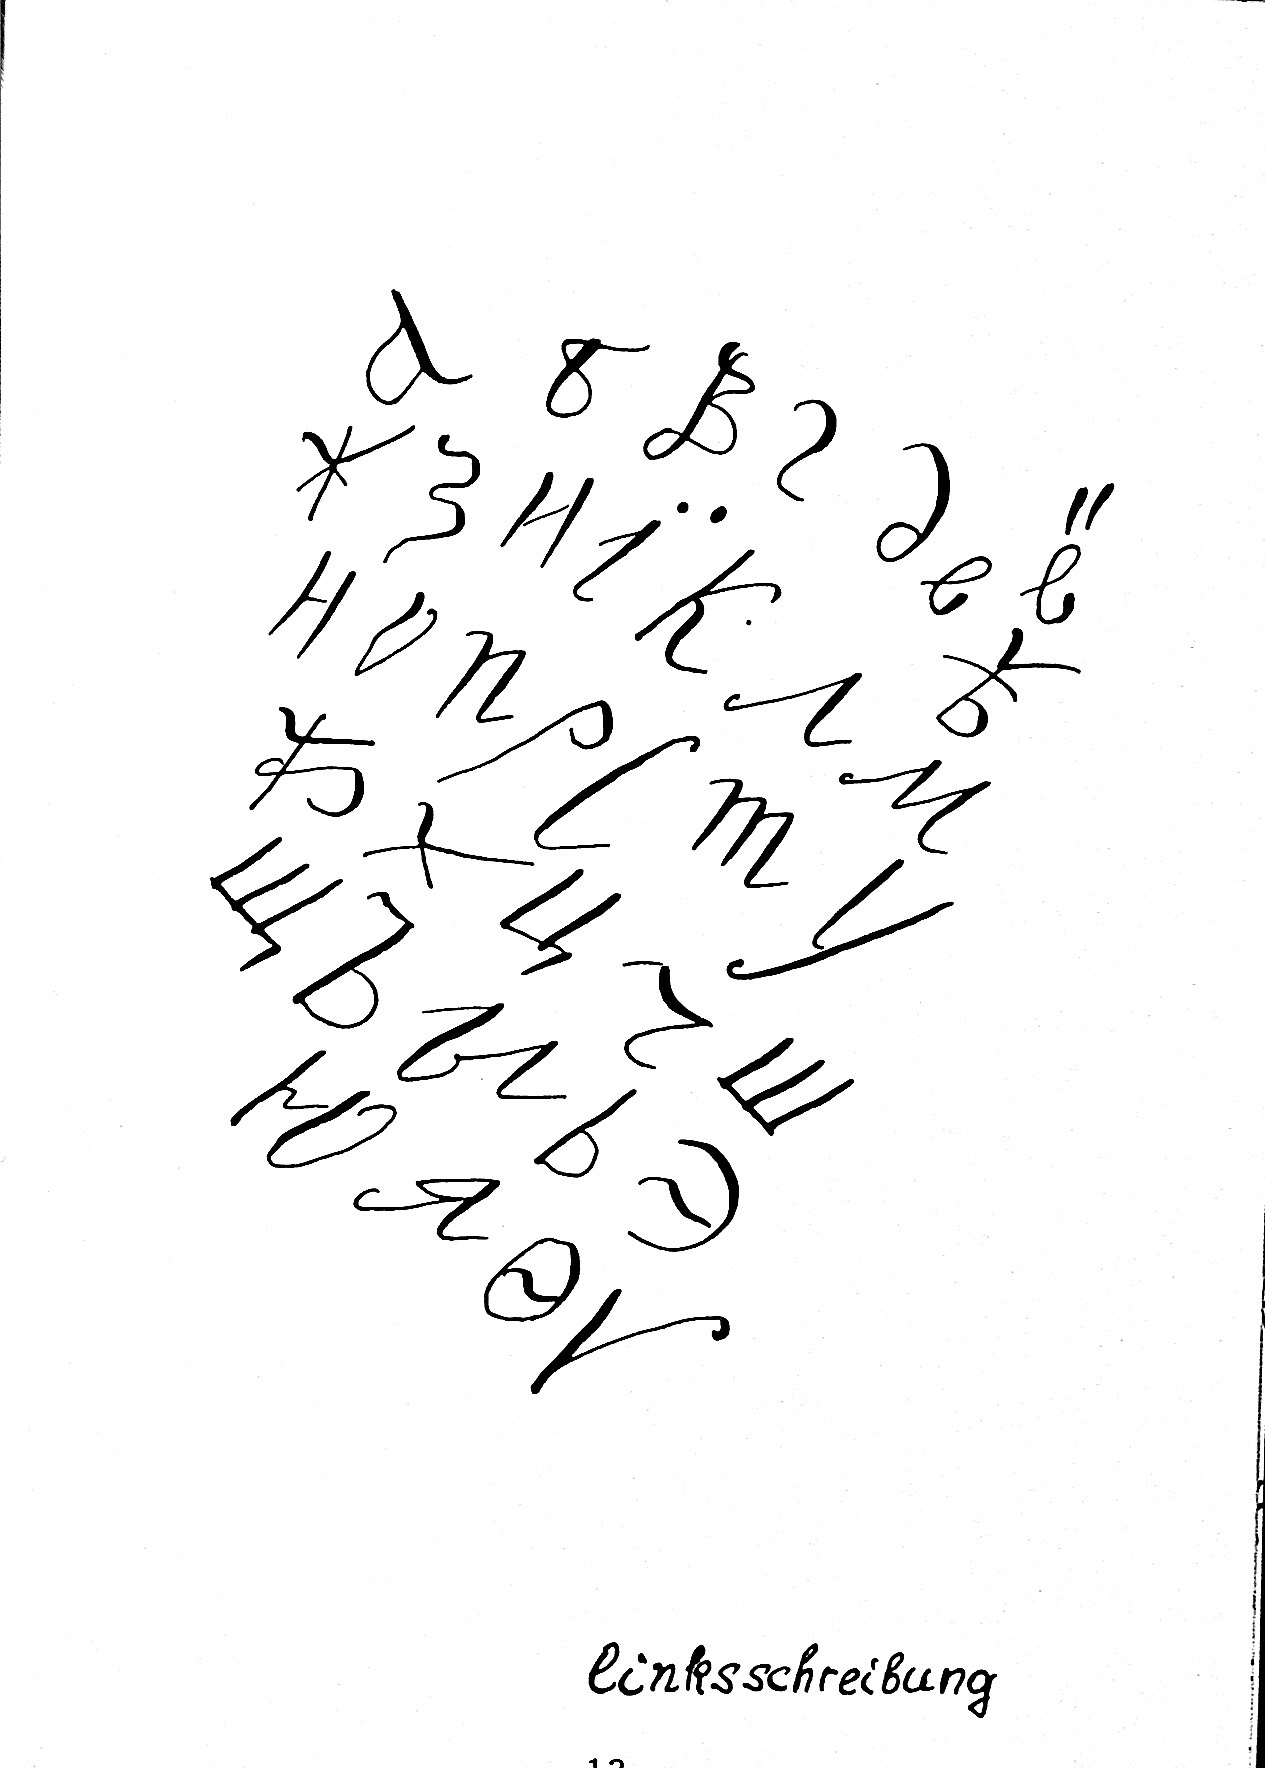 а б в г д е ё ѣ
ж з и ї к л м
н о п р с т у
ф х ц ч ш
щ ъ ы ь э
ю я ѳ ѵ
linksschreibung